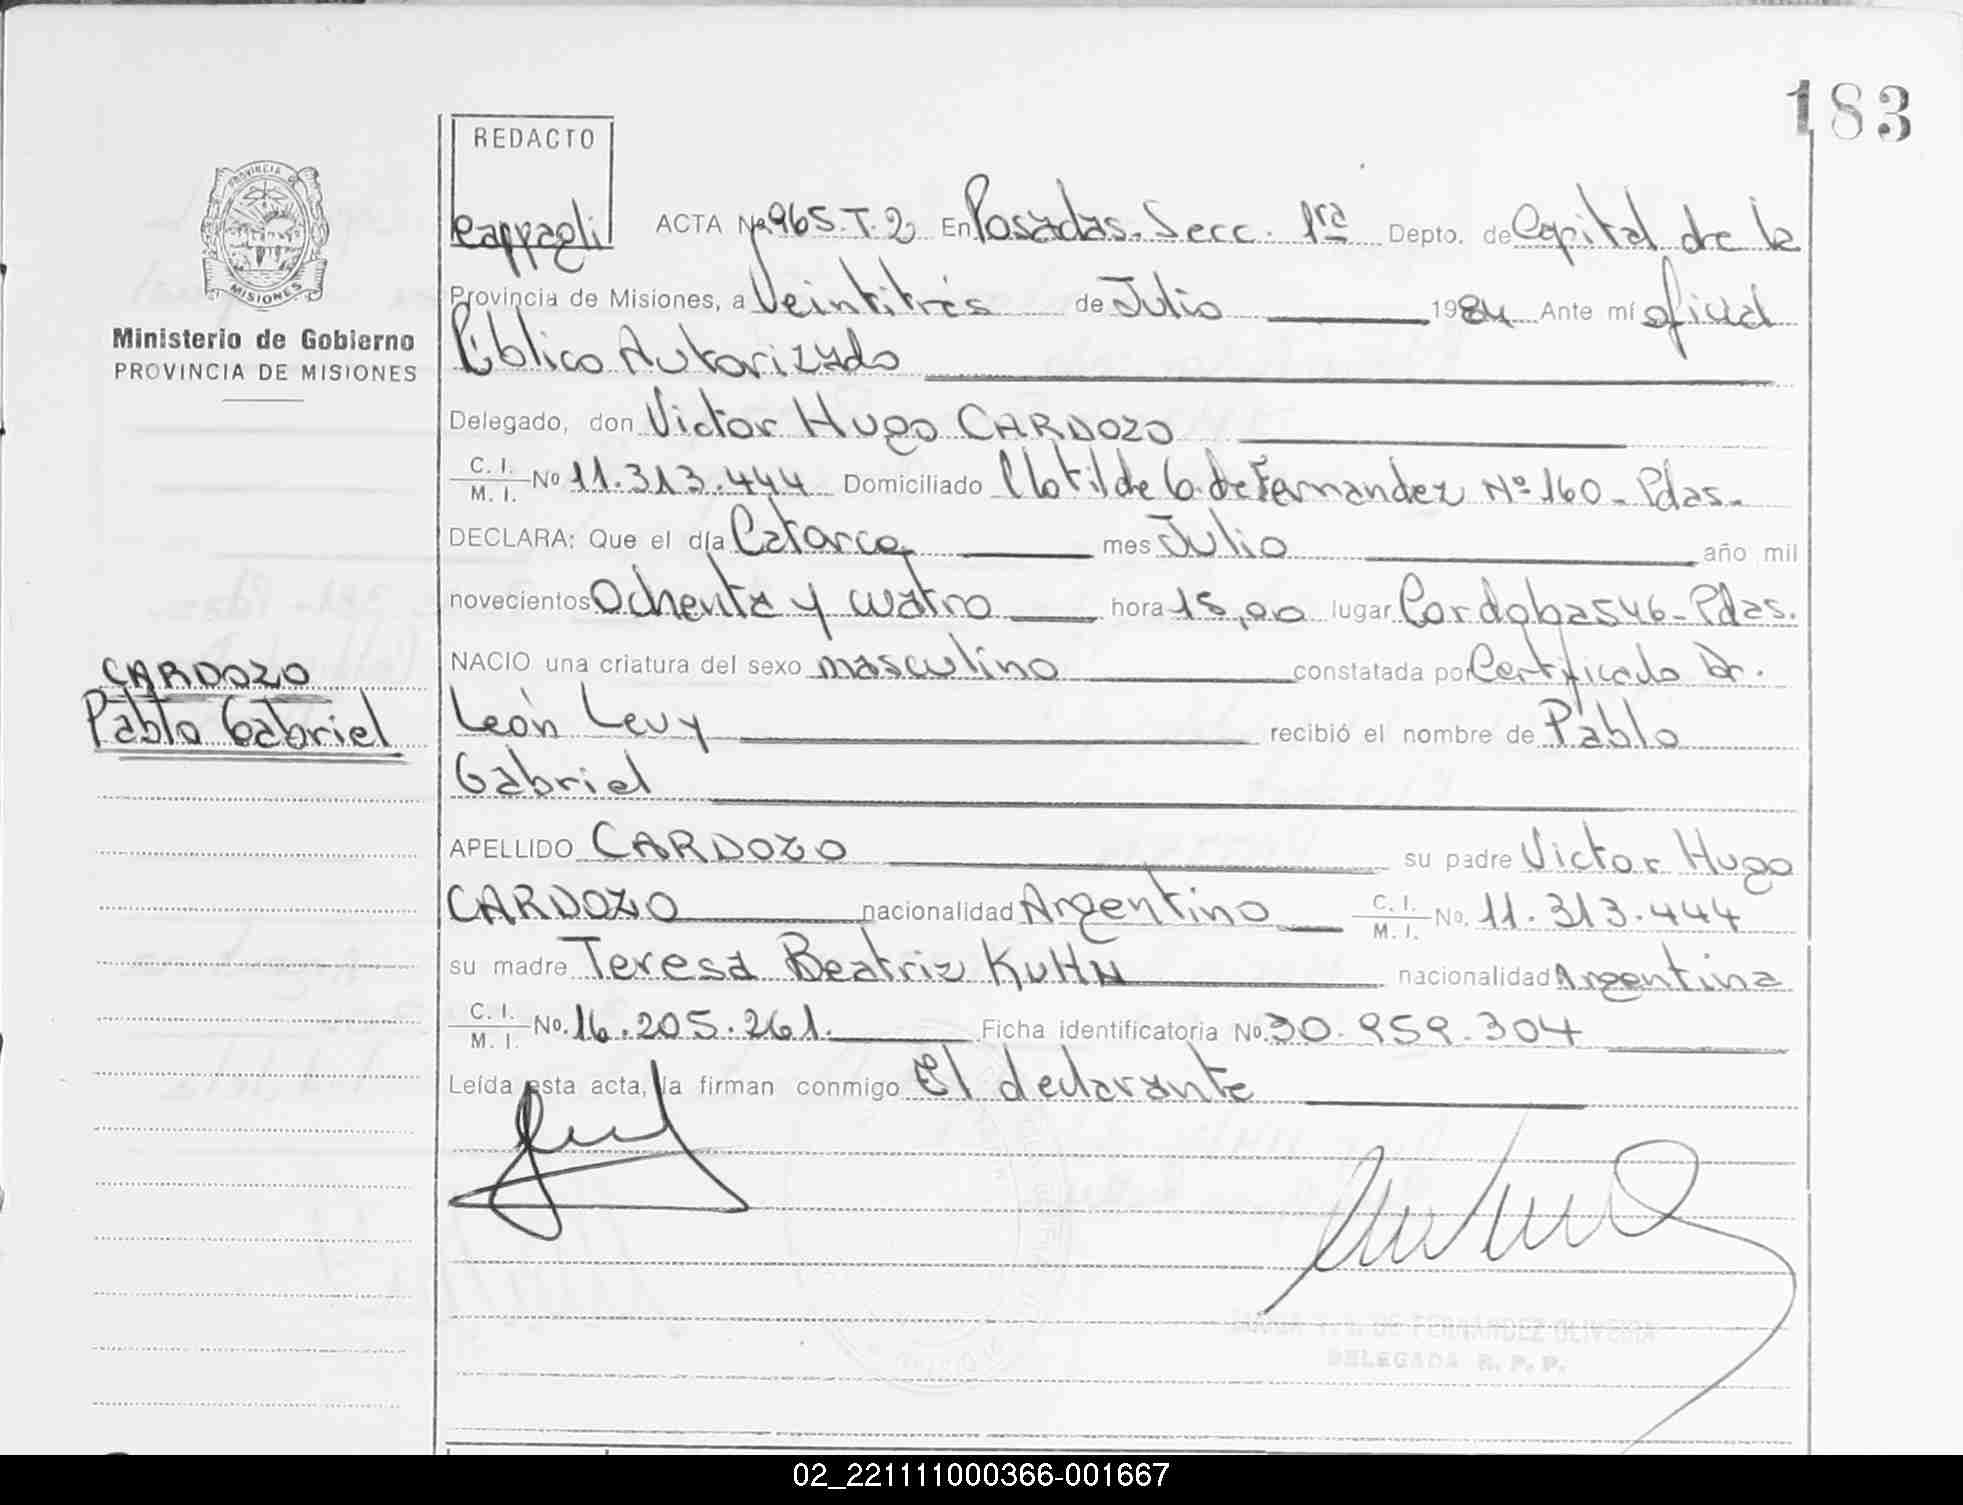 183
REDACTO
Cappagli
ACTA Nº 965.T.2 En Posadas. Secc. 1ra Depto. de Capital de la
PROVINCIA DE MISIONES
Provincia de Misiones, a Veintitrés de Julio 1984 Ante mí oficial
Ministerio de Gobierno
PROVINCIA DE MISIONES
Público Autorizado
Delegado, don Victor Hugo CARDOZO
C. I. M. I. No 11.313.444 Domiciliado Clotilde G. de Fernandez Nº 160 - Pdas-
DECLARA: Que el día Catorce mes Julio año mil
novecientos Ochenta y cuatro hora 15,00 lugar Cordoba 546 - Pdas.
NACIO una criatura del sexo masculino constatada por Certificado Dr.
CARDOZO
Pablo Gabriel
León Levy recibió el nombre de Pablo
Gabriel
APELLIDO CARDOZO su padre Victor Hugo
CARDOZO nacionalidad Argentino C. I. M. I. No. 11.313.444
su madre Teresa Beatriz KUHN nacionalidad Argentina
C. I. M. I. No. 16.205.261. Ficha identificatoria No. 30.959.304
Leída esta acta, la firman conmigo El declarante
DE FERNANDEZ OLIVEIRA
DELEGADA R. P. P.
02_221111000366-001667